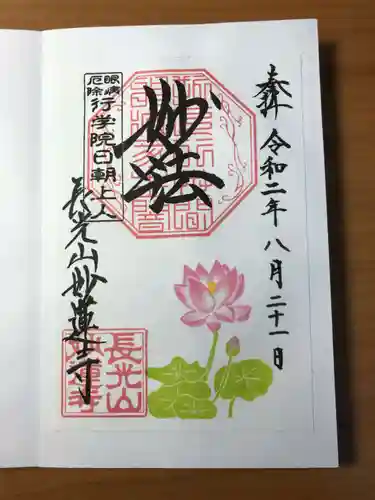 奉拝 令和二年八月二十一日
妙法
眼病
厄除
行学院日朝上人
長光山妙蓮寺
長光山
妙蓮寺